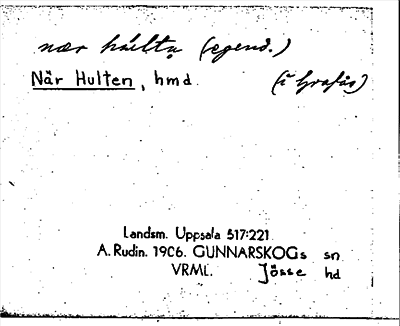 nær húlta (egend.)
När Hulten, hmd. (i Grafås)
Landsm. Uppsala 517:221.
A. Rudin. 1906. GUNNARSKOGs sn
VRML. Jösse hd